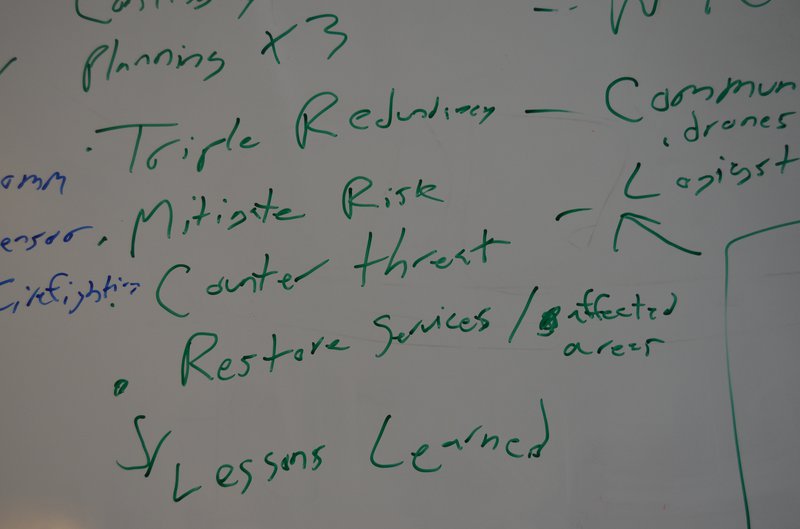 Planning x3
• Triple Redundancy — Commun
• drones
• Mitigate Risk
– Logist
• Counter threat
Firefighting
• Restore Services / affected
areas
Lessons Learned